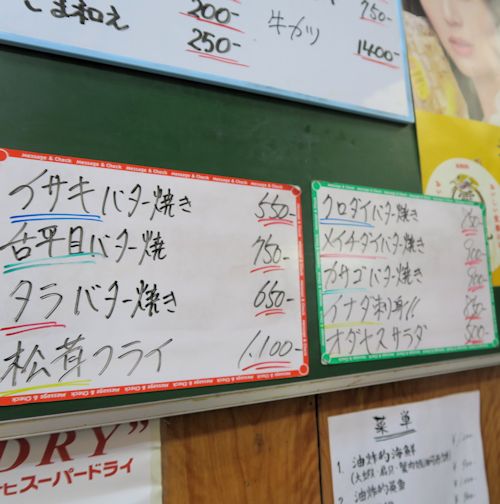 ごま和え 200-
250-
牛カツ 750-
1400-
Message & Check Message & Check Message & Check Message & Check
イサキバター焼き 550-
舌平目バター焼 750-
タラバター焼き 650-
松茸フライ 1.100-
クロダイバター焼き
メイチダイバター焼き 900-
カサゴバター焼き 900-
イナダ刺身!! 850-
オダセスサラダ 500-
DRY”
スーパードライ
菜単
1. 油炸的海鮮
油炸的蚕魚